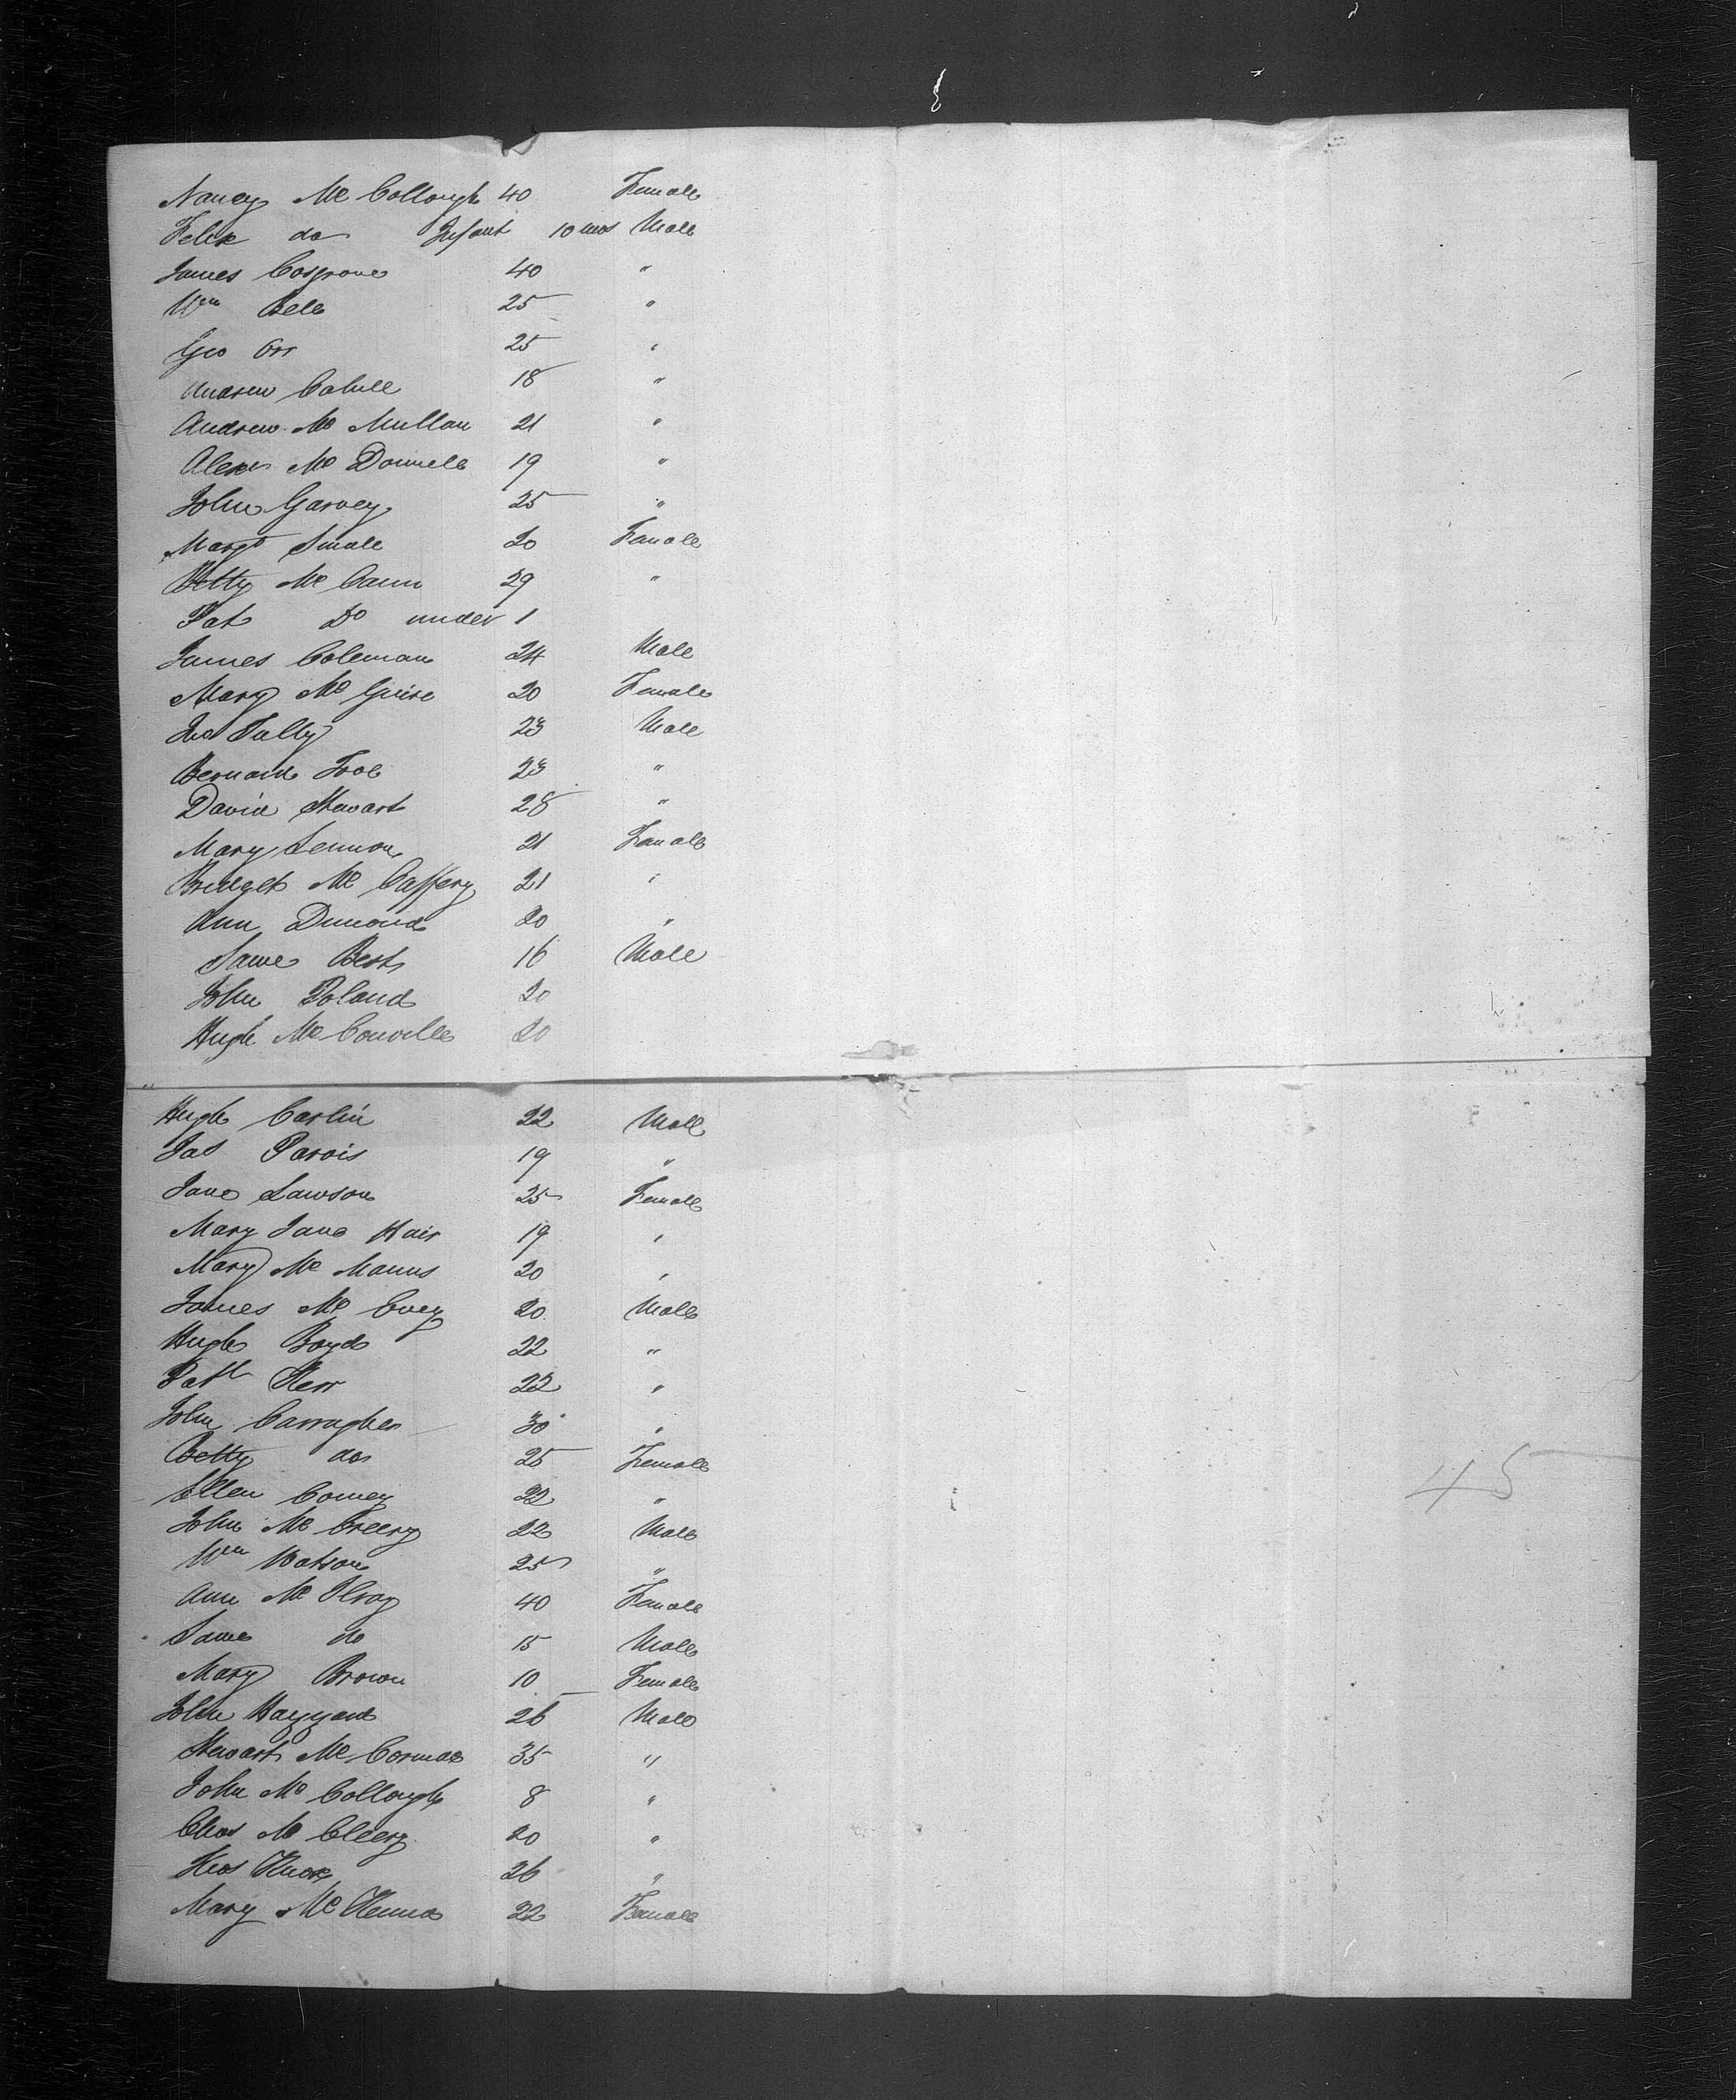 Nancy Mc Collough 40 Female
Felix do Infant 10 mos Male
James Cosgrove 40 "
Wm Bell 25 "
Geo Orr 25 "
Andrew Cahill 18 "
Andrew Mc Mullan 21 "
Alexr Mc Donnell 19 "
John Garvey 25 "
Margt Small 20 Female
Betty Mc Cann 29 "
Pat Do under 1
James Coleman 24 Male
Mary Mc Guire 20 Female
Jno Tully 23 Male
Bernard 23 "
David Stewart 28 "
Mary Lennon 21 Female
Bridget Mc Caffery 21 "
Ann Dumond 20 "
Saml Best 16 Male
John Poland 20
Hugh Mc Conville 20
Hugh Carlin 22 Male
Jas Parvis 19 "
Jane Lawson 25 Female
Mary Jane Hair 19 "
Mary Mc Manus 20 "
James Mc Evey 20 Male
Hugh Boyd 22 "
Patk Kerr 22 "
John Carragher 30 "
Betty do 25 Female
Ellen Comey 22 "
John Mc Creery 22 Male
Wm Watson 25 "
Ann Mc Ilroy 40 Female
Saml do 15 Male
Mary Brown 10 Female
John Hazzard 26 Male
Stewart Mc Cormac 35 "
John Mc Collough 8 "
Chas Mc Cleery 20 "
Thos Knox 26 "
Mary Mc Kenna 22 Female
45